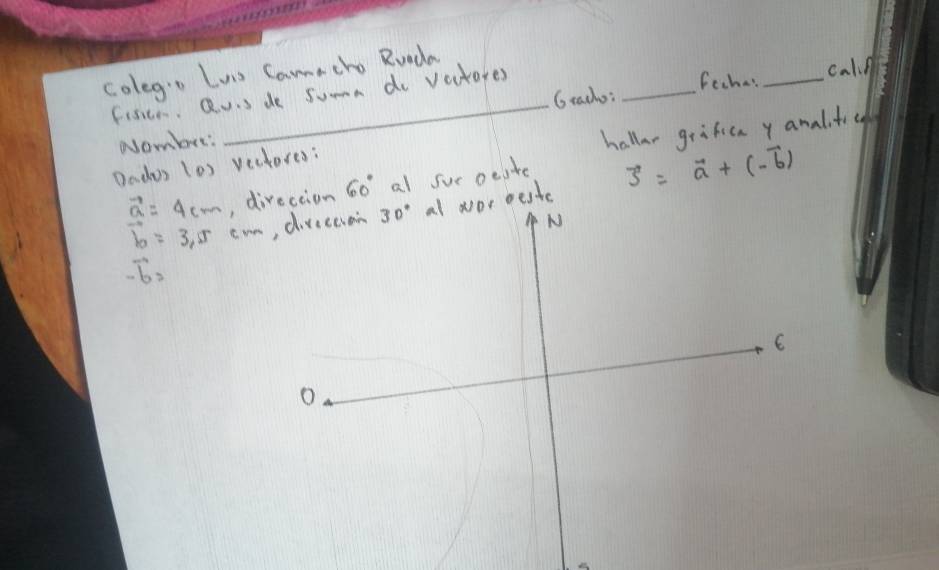 Colegio Luis Camacho Rueda
física. Quis de suma de vectores
Nombre: ____________ Grado: ____ Fecha: ____ Calif
Dados los vectores:
hallar gráfica y analitica
a⃗ = 4cm, direccion 60° al sur oeste
s⃗ = a⃗ + (-b⃗)
b⃗ = 3,5 cm, dirección 30° al nor oeste
-b⃗ =
N
E
O
S